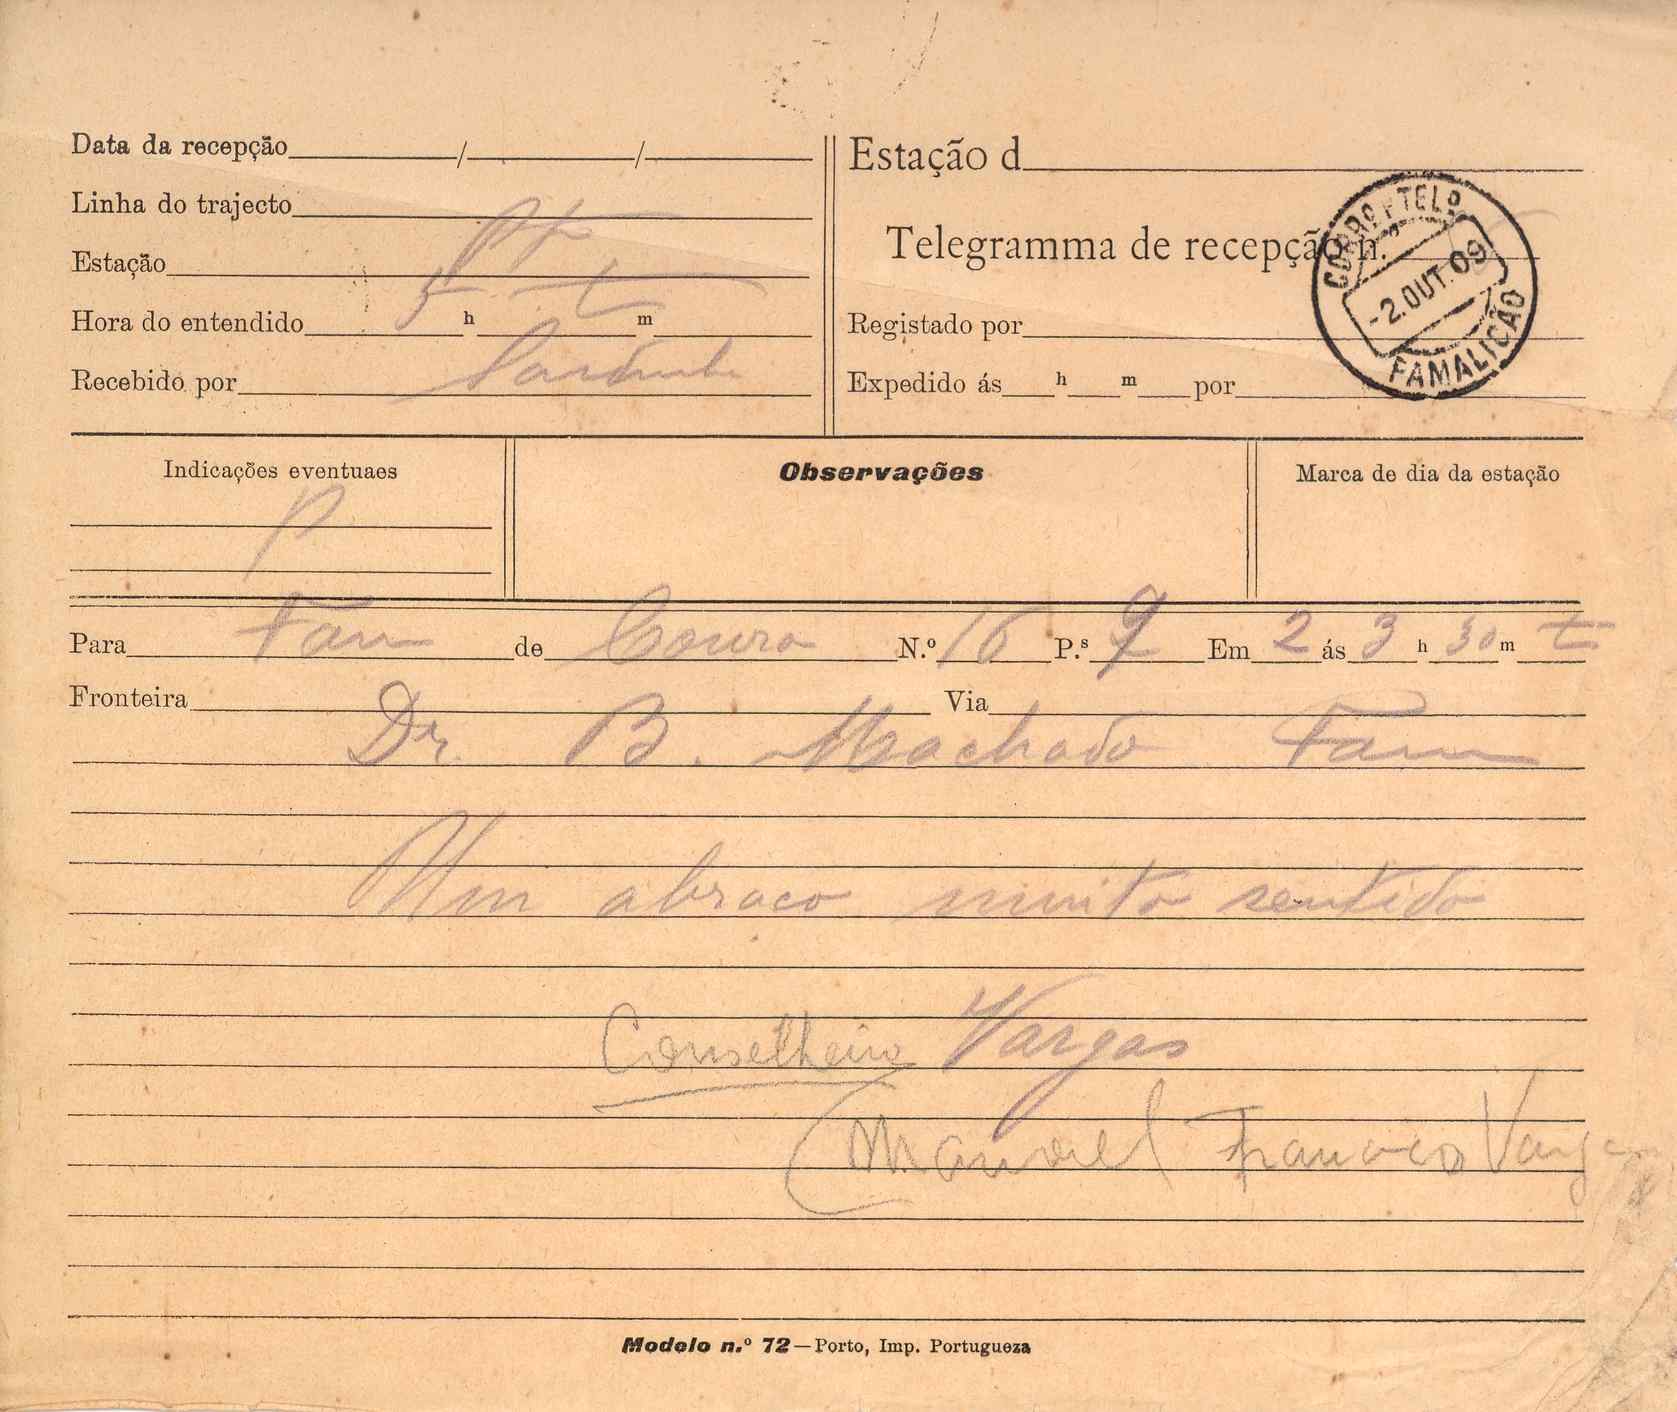 Data da recepção / /
Linha do trajecto
Estação Pt
Hora do entendido 5 h t m
Recebido por
Estação d
Telegramma de recepção n.º
Registado por
Expedido ás h m por
CORRO E TELO
-2.OUT.09
FAMALICÃO
Indicações eventuaes
P
Observações
Marca de dia da estação
Para Fam de Coura N.º 16 P.s 9 Em 2 ás 3 h 30 m t
Fronteira Via
Dr. B. Machado Fam
Um abraco muito sentido
Conselheiro Vargas
(Manoel Francisco Vargas
Modelo n.º 72—Porto, Imp. Portugueza